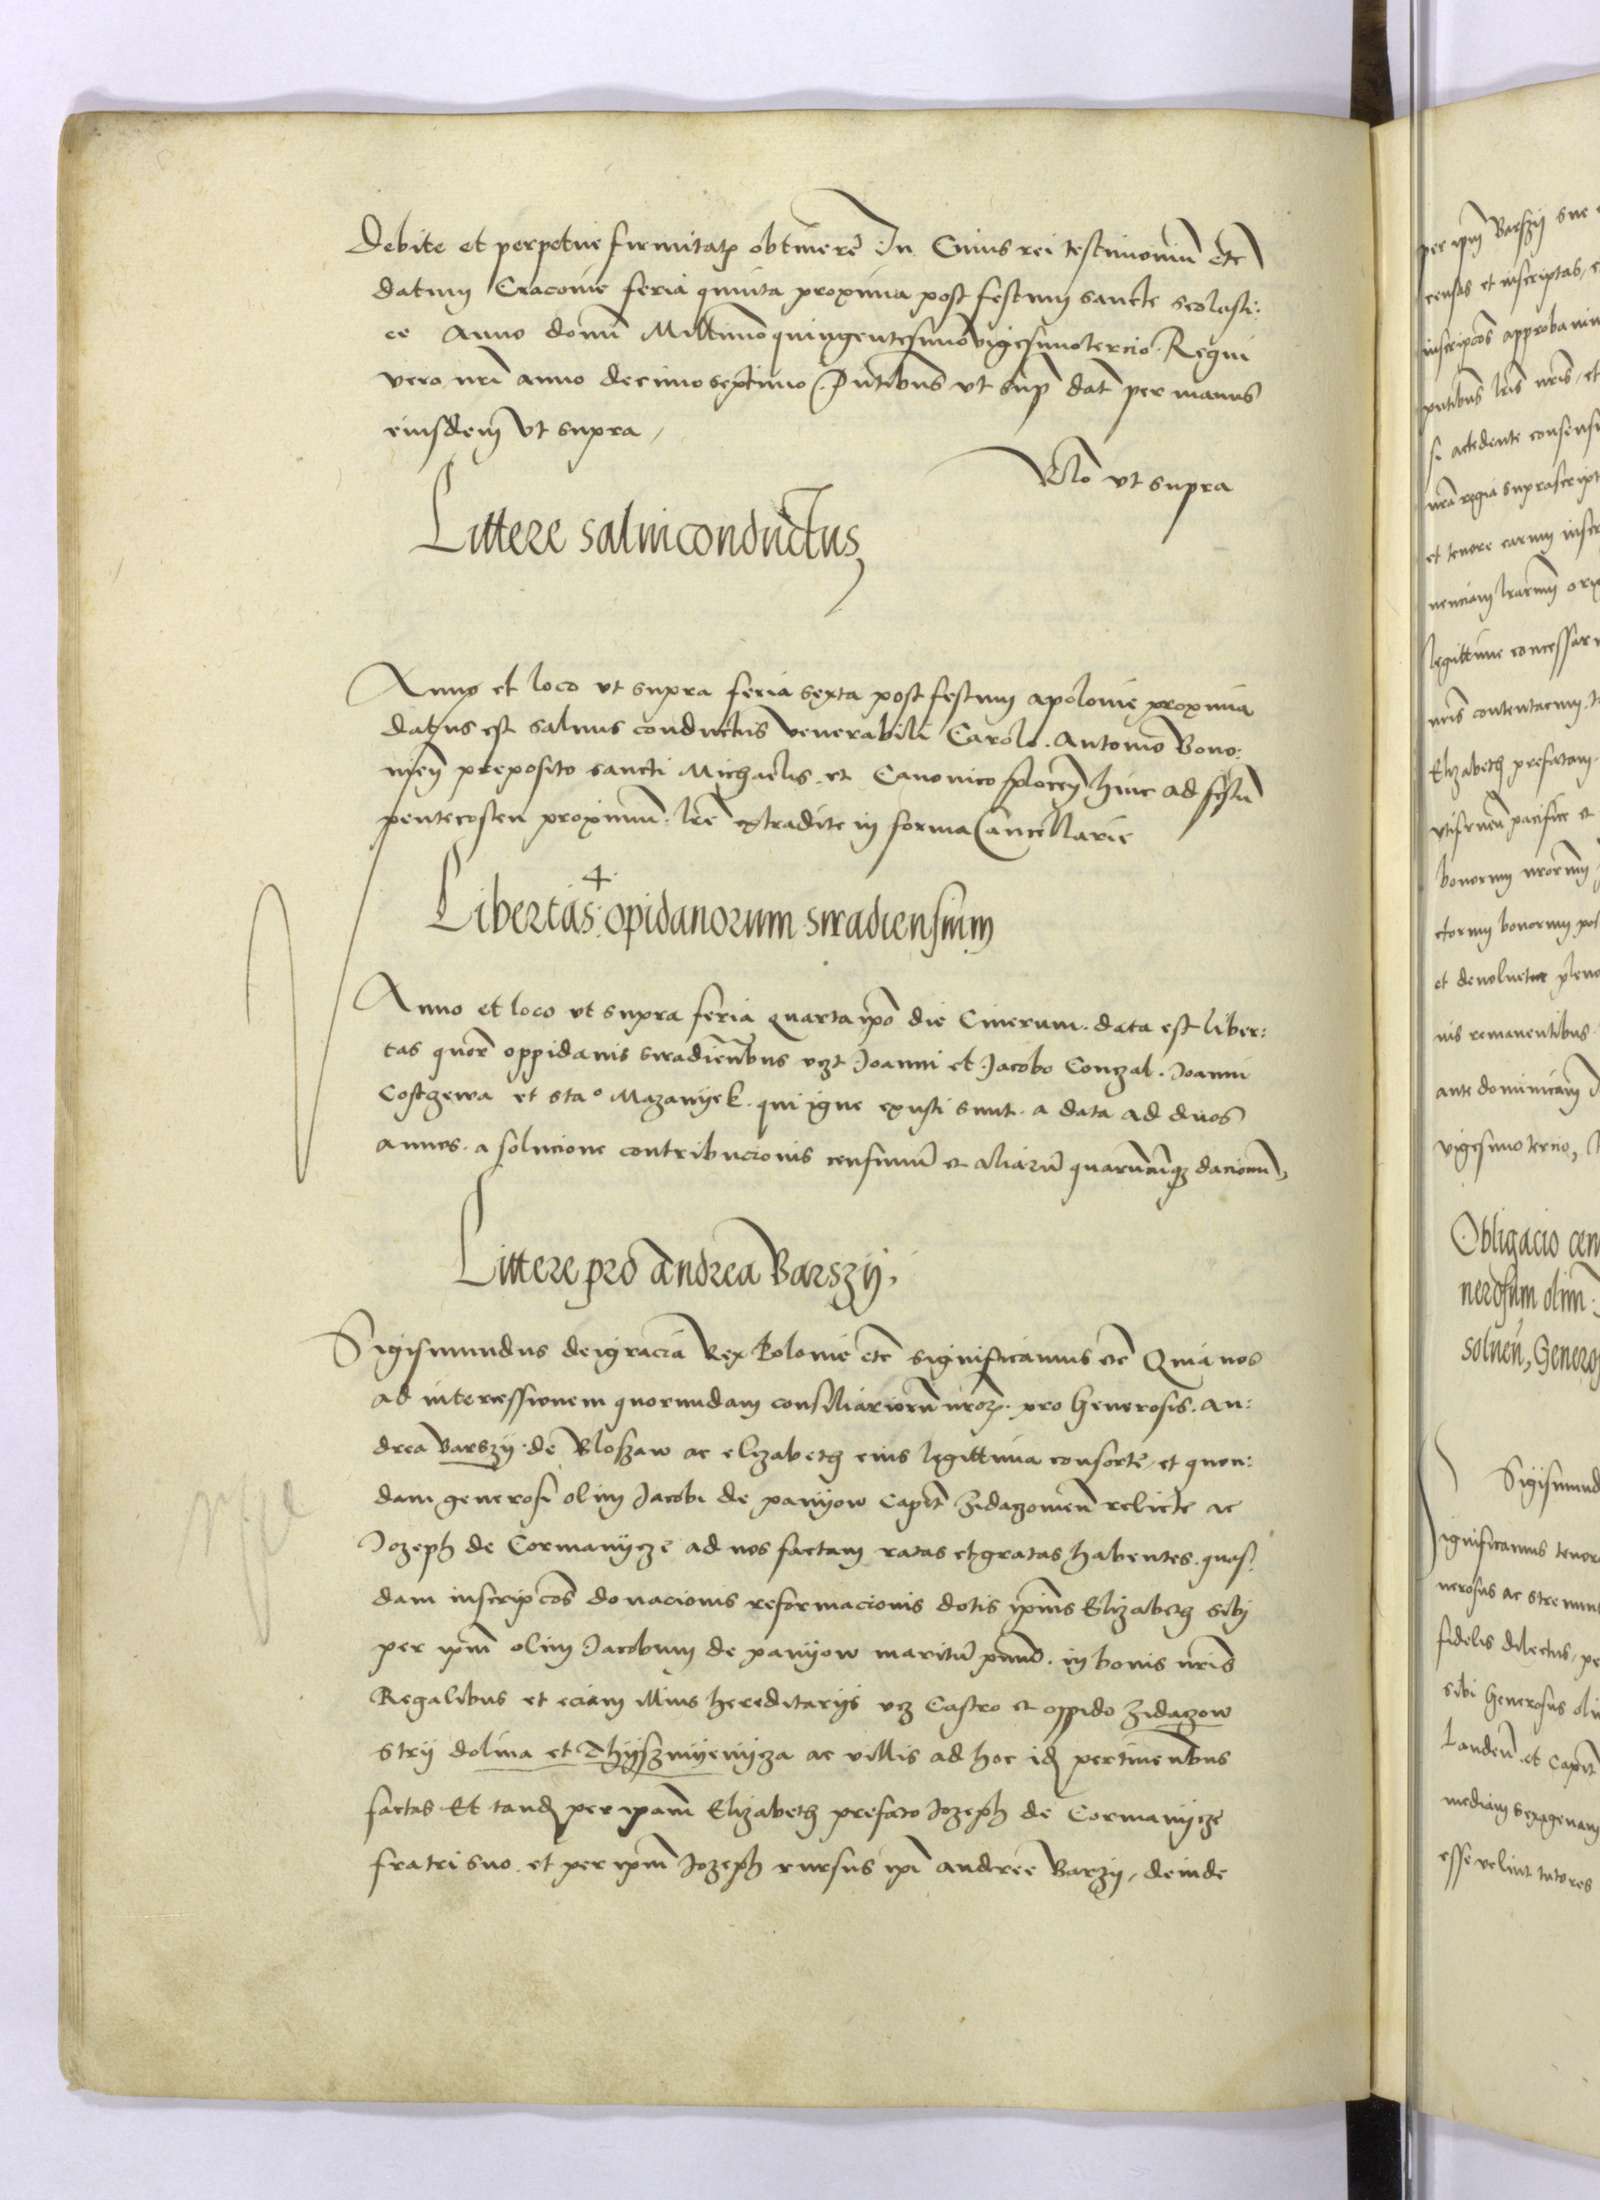 Debite et perpetue firmitatis obtinere In Cuius rei testimonium etc
datum Cracovie feria quinta proxima post festum sancte scolasti:
ce Anno domini Millimo quingentesimo vigesimotercio. Regni
vero nri anno decimoseptimo Pntibus ut sup dat per manus
eiusdem ut supra,
Rlo ut supra
Littere salviconductus
Anno et loco ut supra feria sexta post festum apolonie proxima
datus est salvus conductus venerabili Carolo. Antonio Bono:
nien preposito sancti Michaelis et Canonico plocen hinc ad festu
pentecosten proximum. lre extradite in forma Cancellarie
Libertas opidanorum siradiensium
Anno et loco ut supra feria quarta ipo die Cinerum. data est liber:
tas quor oppidanis siradienbus vzt Joanni et Jacobo Conzal. Joanni
Costzewa et Stao Mazanyek. qui igne exusti sunt. a data ad duos
annos. a solucione contribucionis censuum et aliaru quarucuqz dacionu,
Littere pro andrea Barszij,
Sigismundus dei gracia Rex Polonie etc significamus etc Quia nos
ad intercessionem quorundam consiliarioru nroz. pro Generosis. An:
drea Barszij. de Bloszaw ac elizabeth eius legittima consorte, et quon:
dam generosi olim Jacobi de panyow Capit Zidazowien relicte ac
Jozeph de Cormanycze ad nos factam ratas et gratas habentes. quas:
dam inscripcos donacionis reformacionis dotis ipius Elizabeth sibi
per ipm olim Jacobum de panyow maritu pmu. in bonis nris
Regalibus et eciam illius hereditarijs vz Castro et oppido Zidazow
Strij dolina et Thyszmyenycza ac villis ad hoc id pertinenbus
factas Et tand per ipam Elizabeth prefato Jozeph de Cormanycze
fratri suo et per ipm Jozeph rursus ipi andree Barzij, deinde
per ipm Barszij sue
censas et inscriptas, e
inscripcos approbavim
pntibus lris nris, et
si accedente consensu
nra regia suprascript
et tenore earum inscr
legittime concessar
nris contentarum. t
Elizabeth prefatam
utifruen pacifice et
bonorum nrorum
ctorum bonorum pos
et devolvetur pleno
nis remanentibus
ante dominicam
vigesimo tercio,
Obligacio cen
nerosum olim
solven, Generos
Sigismund
ignificamus tenor
nerosus ac strenuu
fidelis dilectus, pe
sibi Generosus oli
Landen et Capit
mediam sexagenam
esse velint tutores